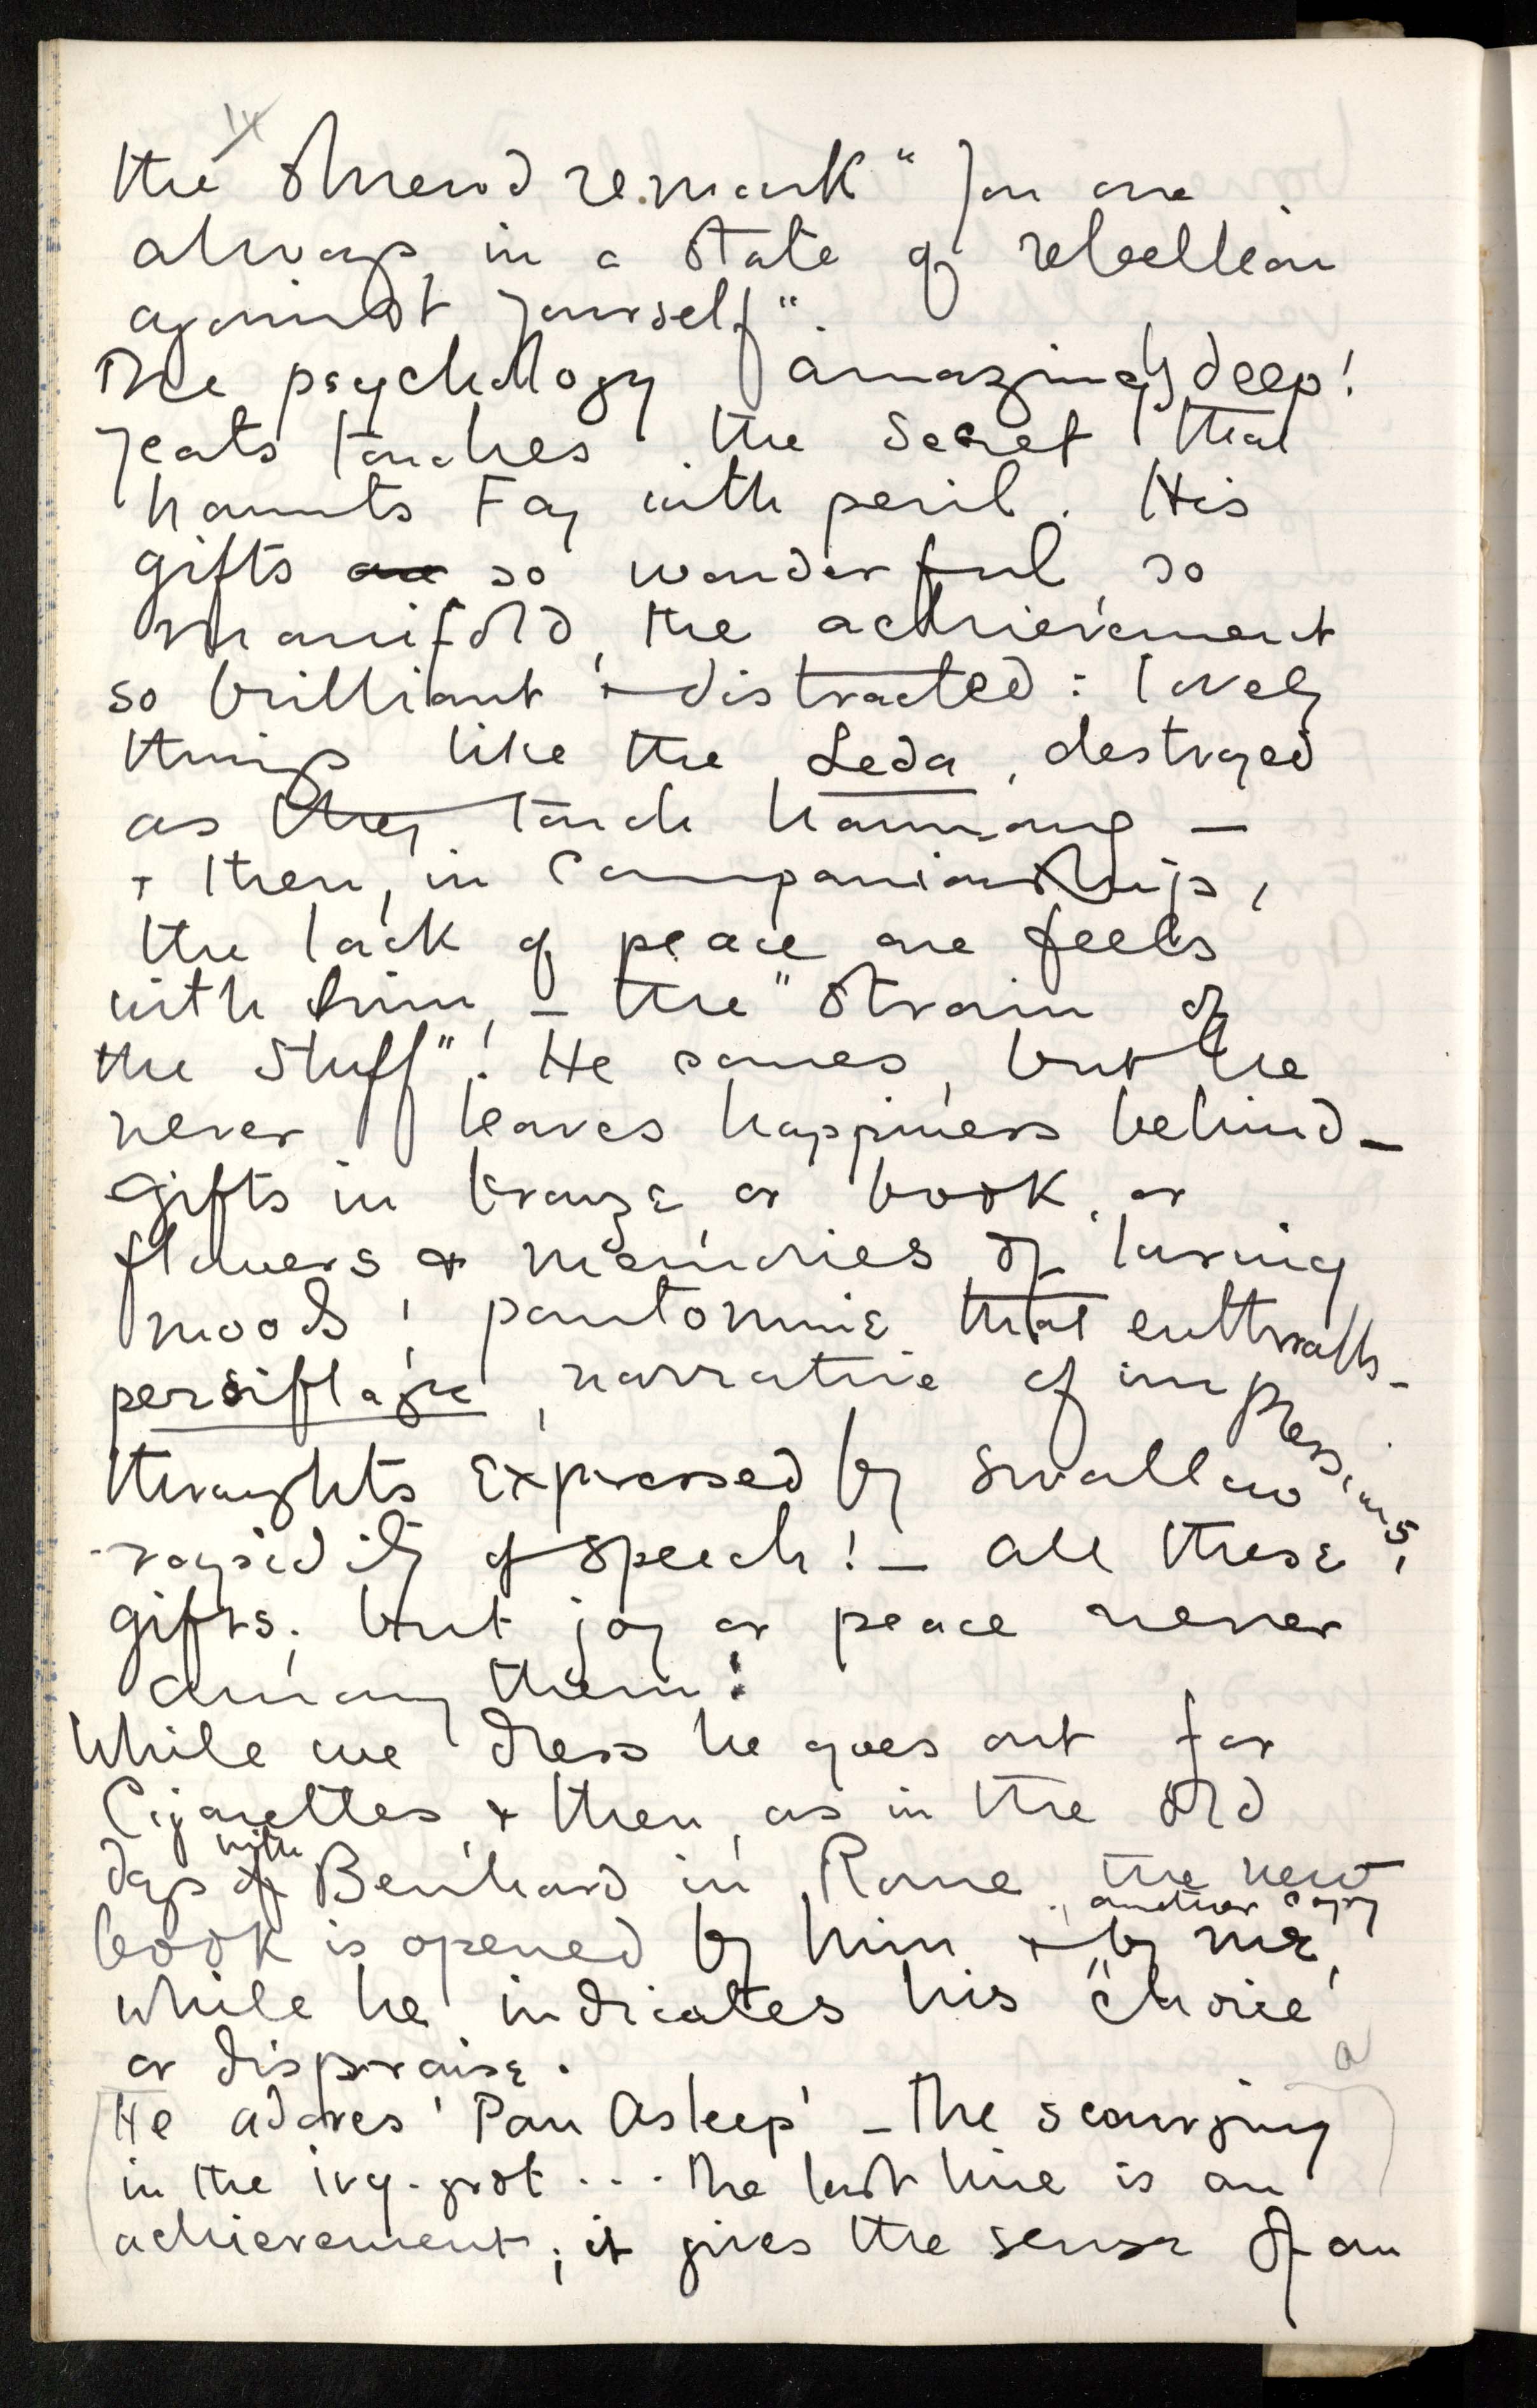 14
the shrewd remark "You are
always in a state of rebellion
against yourself".
The psychology amazingly deep!
Yeats touches the secret that
haunts Fay with peril. His
gifts are so wonderful, so
manifold, the achievement
so brilliant + distracted: lovely
things like the Leda, destroyed
as they touch harmony —
+ then, in companionship,
the lack of peace one feels
with him, – the "strain of
the stuff"! He comes, but he
never leaves happiness behind –
Gifts in bronze or book, or
flowers & memories of loving
moods, pantomime that enthralls –
persiflage, narrative of impressions,
thoughts expressed by swallow
rapidity of speech! – all these
gifts; but joy or peace never
among them!
While we dress he goes out for
Cigarettes, + then, as in the old
days of with Bernhard in Rome, the new
book is opened by him + another copy by me,
while he indicates his choice
or dispraise.
a
He adores 'Pan Asleep' – the scourging
in the ivy-grot ... the last line is an
achievement; it gives the sense of an